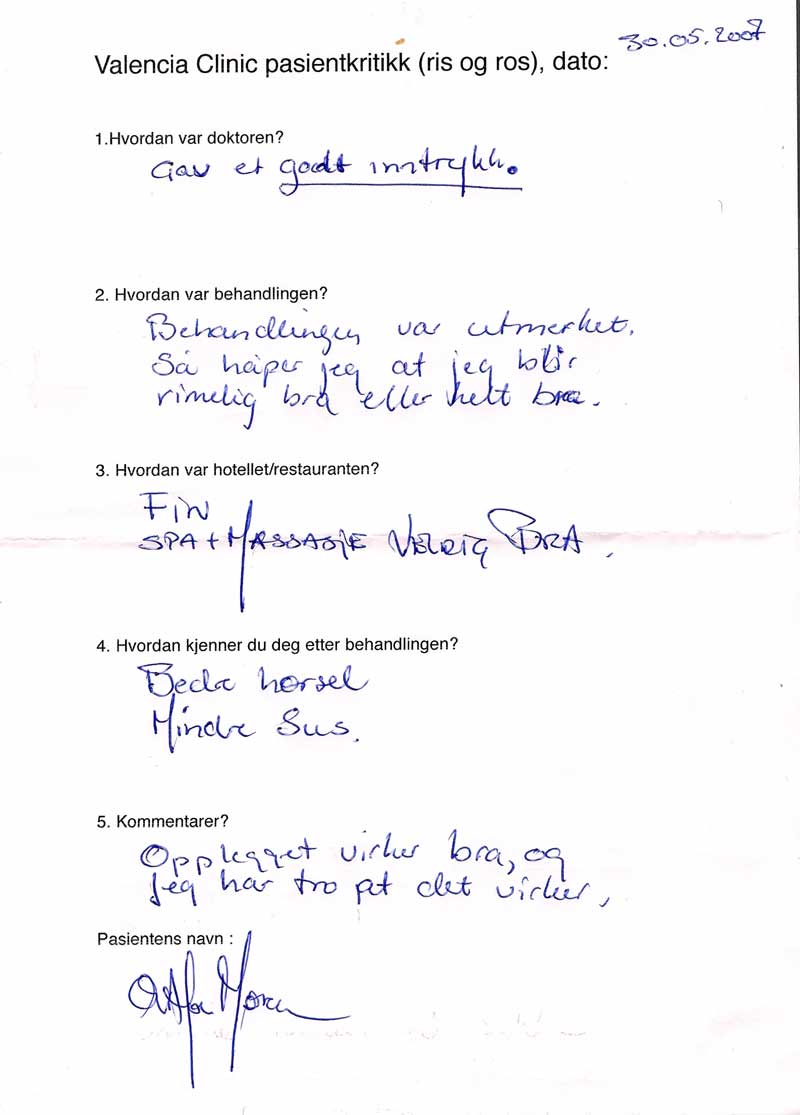 Valencia Clinic pasientkritikk (ris og ros), dato: 30.05.2007
1.Hvordan var doktoren?
Gav et godt inntrykk.
2. Hvordan var behandlingen?
Behandlingen var utmerket.
Så håper jeg at jeg blir
rimelig bra eller helt bra.
3. Hvordan var hotellet/restauranten?
FIN
SPA + MASSASJE VELDIG BRA.
4. Hvordan kjenner du deg etter behandlingen?
Bedre hørsel
Mindre Sus.
5. Kommentarer?
Opplegget virker bra, og
jeg har tro på det virker,
Pasientens navn :